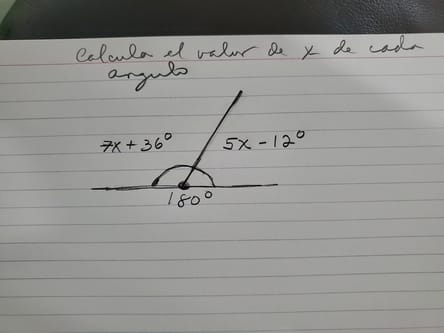 Calcula el valor de x de cada
angulo
7x + 36°
5x - 12°
180°